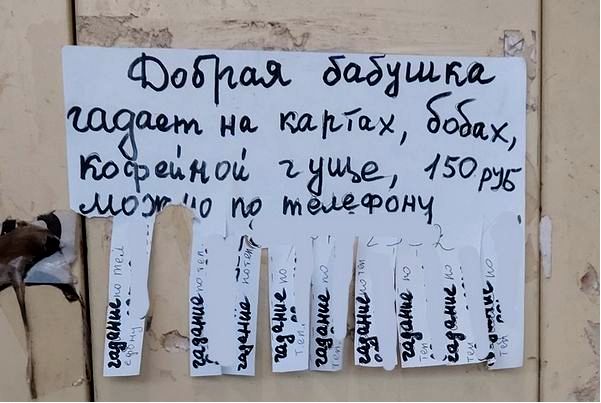 Добрая бабушка
гадает на картах, бобах,
кофейной гуще, 150 руб
можно по телефону
гадание по тел
ефону
гадание по тел
гадание по тел
гадание по
тел.
гадание по
тел.
гадание по тел
гадание по
тел
гадание по
тел
гадание по
тел